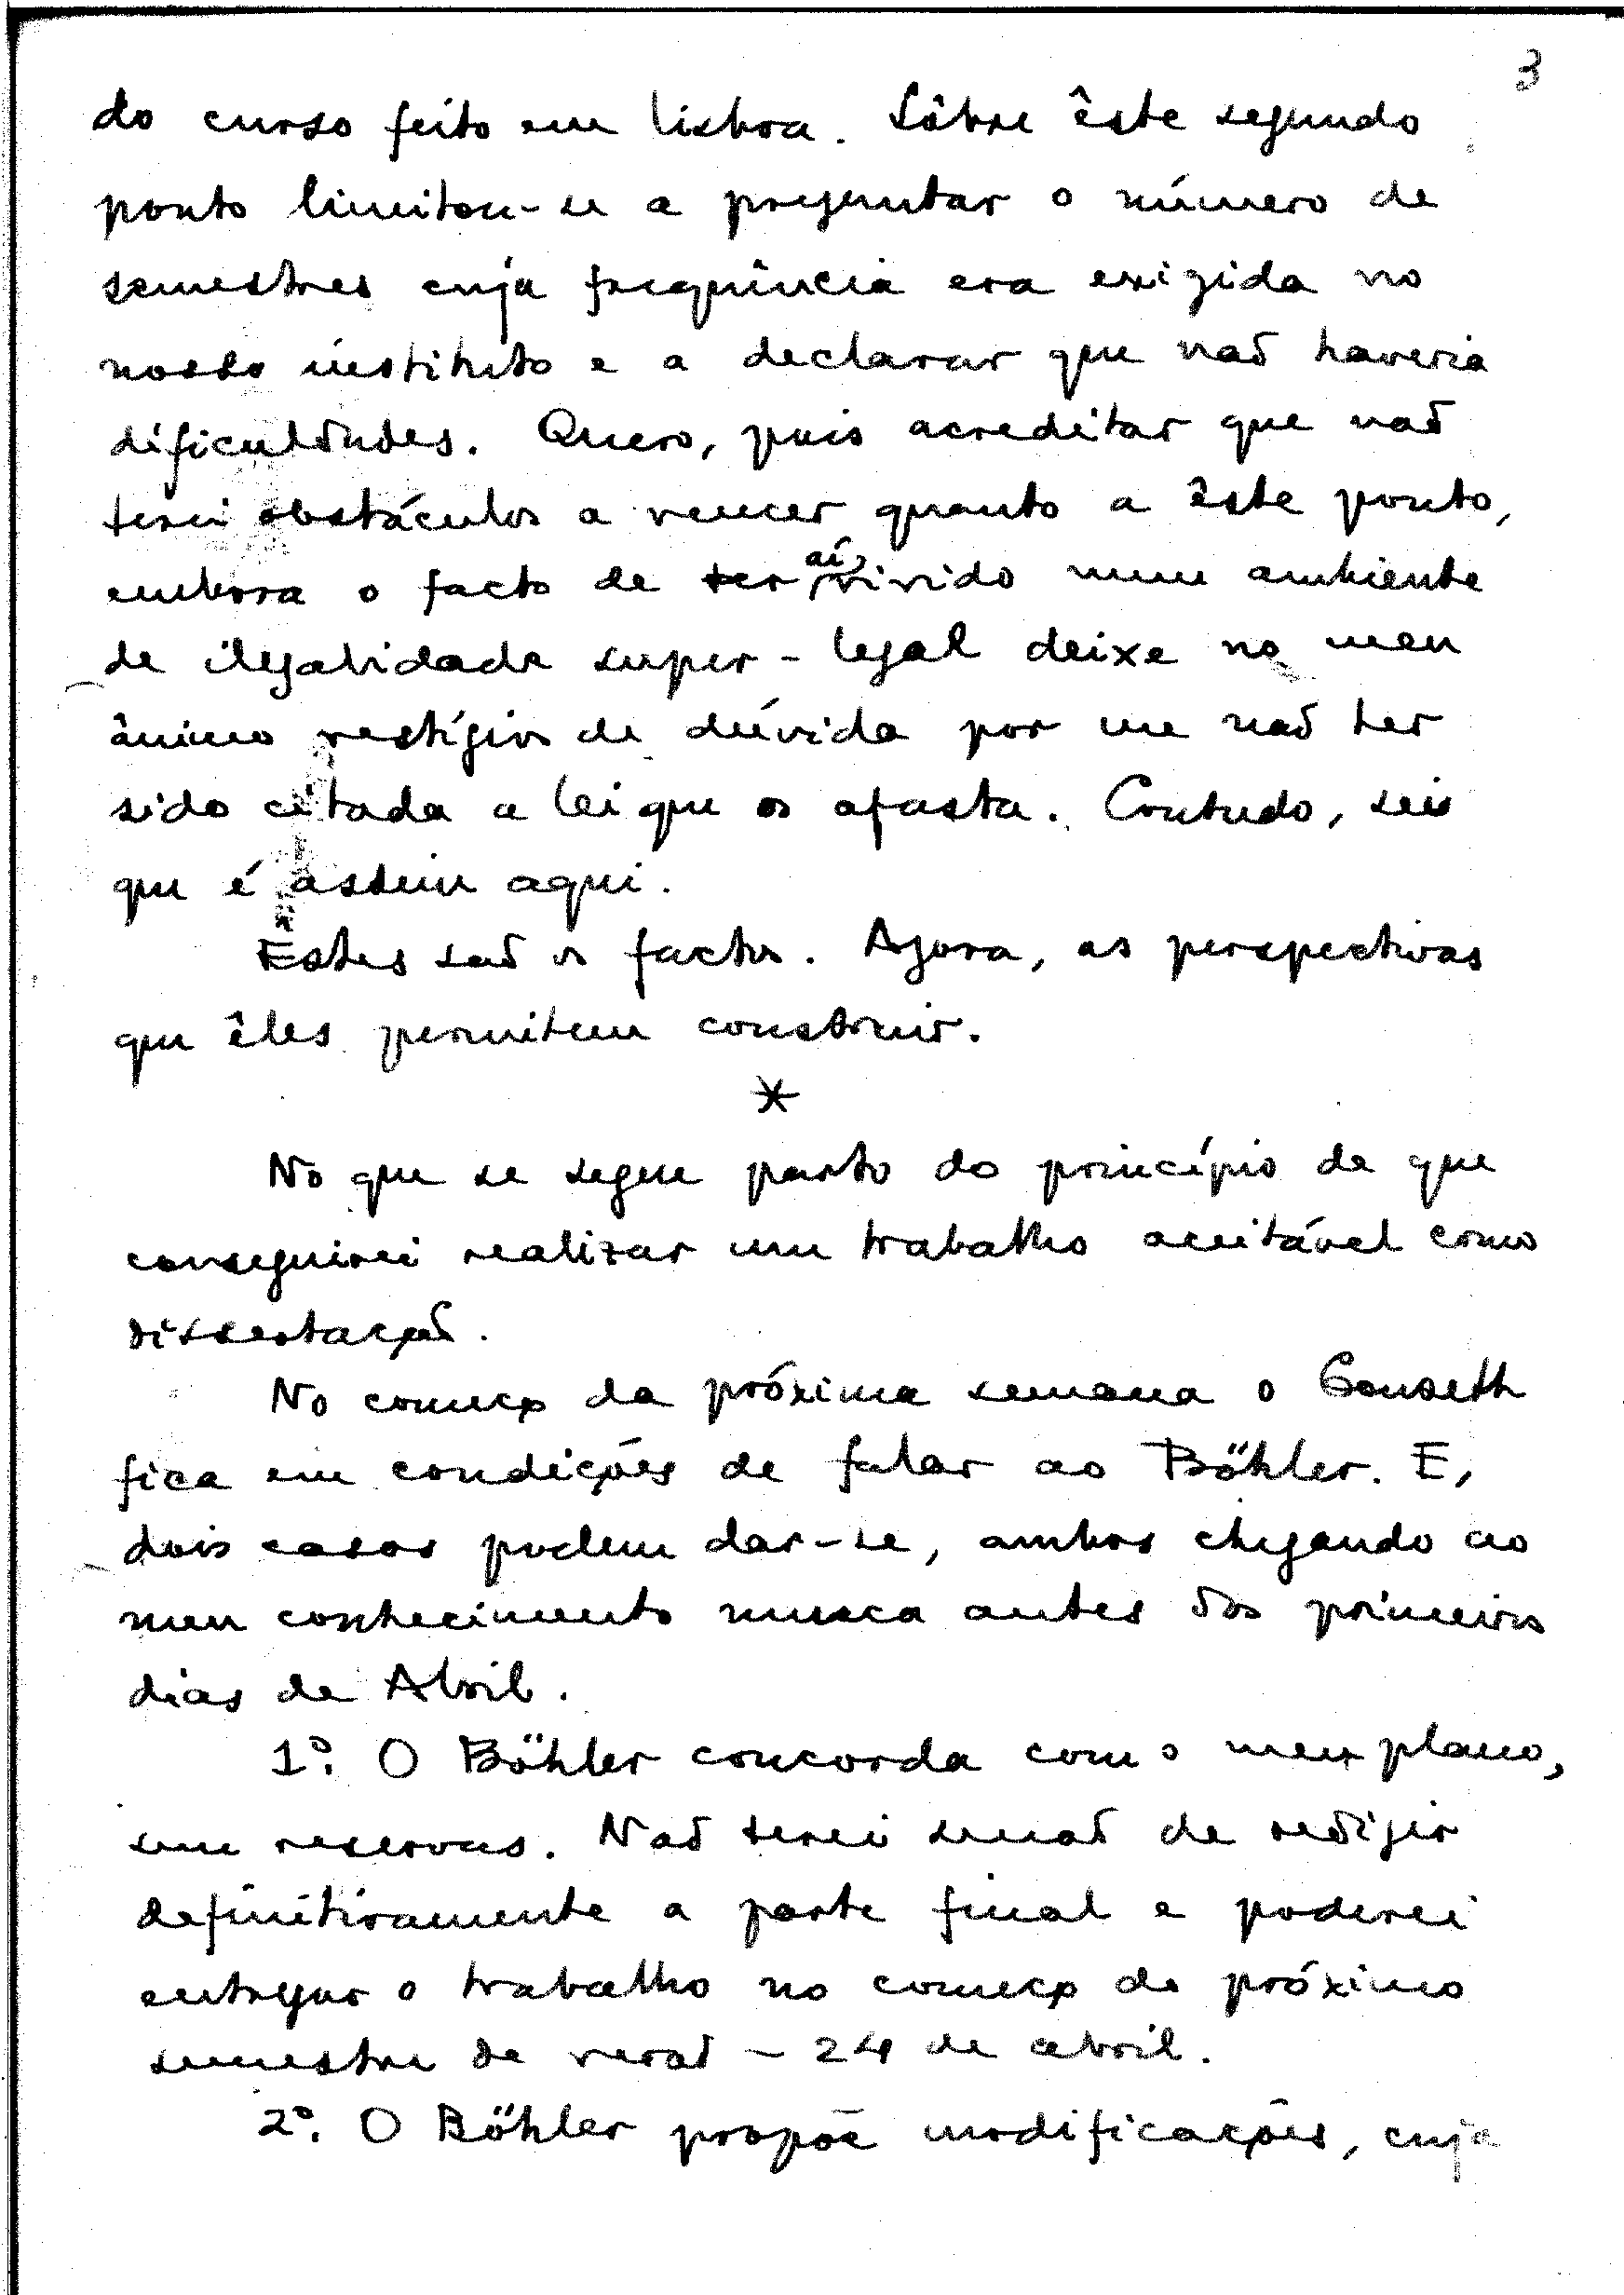 3
do curso feito em Lisboa. Sôbre êste segundo
ponto limitou-se a preguntar o número de
semestres cuja freqüência era exigida no
nosso instituto e a declarar que não haveria
dificuldades. Quero, pois acreditar que não
terei obstáculos a vencer quanto a êste ponto,
embora o facto de ter aí vivido num ambiente
de ilegalidade super-legal deixe no meu
ânimo vestígios de dúvida por me não ter
sido citada a lei que os afasta. Contudo, seis
que é assim aqui.
Estes são os factos. Agora, as perspectivas
que êles permitem construir.
*
No que se segue parto do princípio de que
conseguirei realizar um trabalho aceitável como
dissertação.
No começo da próxima semana o Gonseth
fica em condições de falar ao Böhler. E,
dois casos podem dar-se, ambos chegando ao
meu conhecimento nunca antes dos primeiros
dias de Abril.
1º. O Böhler concorda com o meu plano,
sem reservas. Não terei senão de redigir
definitivamente a parte final e poderei
entregar o trabalho no começo do próximo
semestre de verão – 24 de abril.
2º. O Böhler propõe modificações, cuja